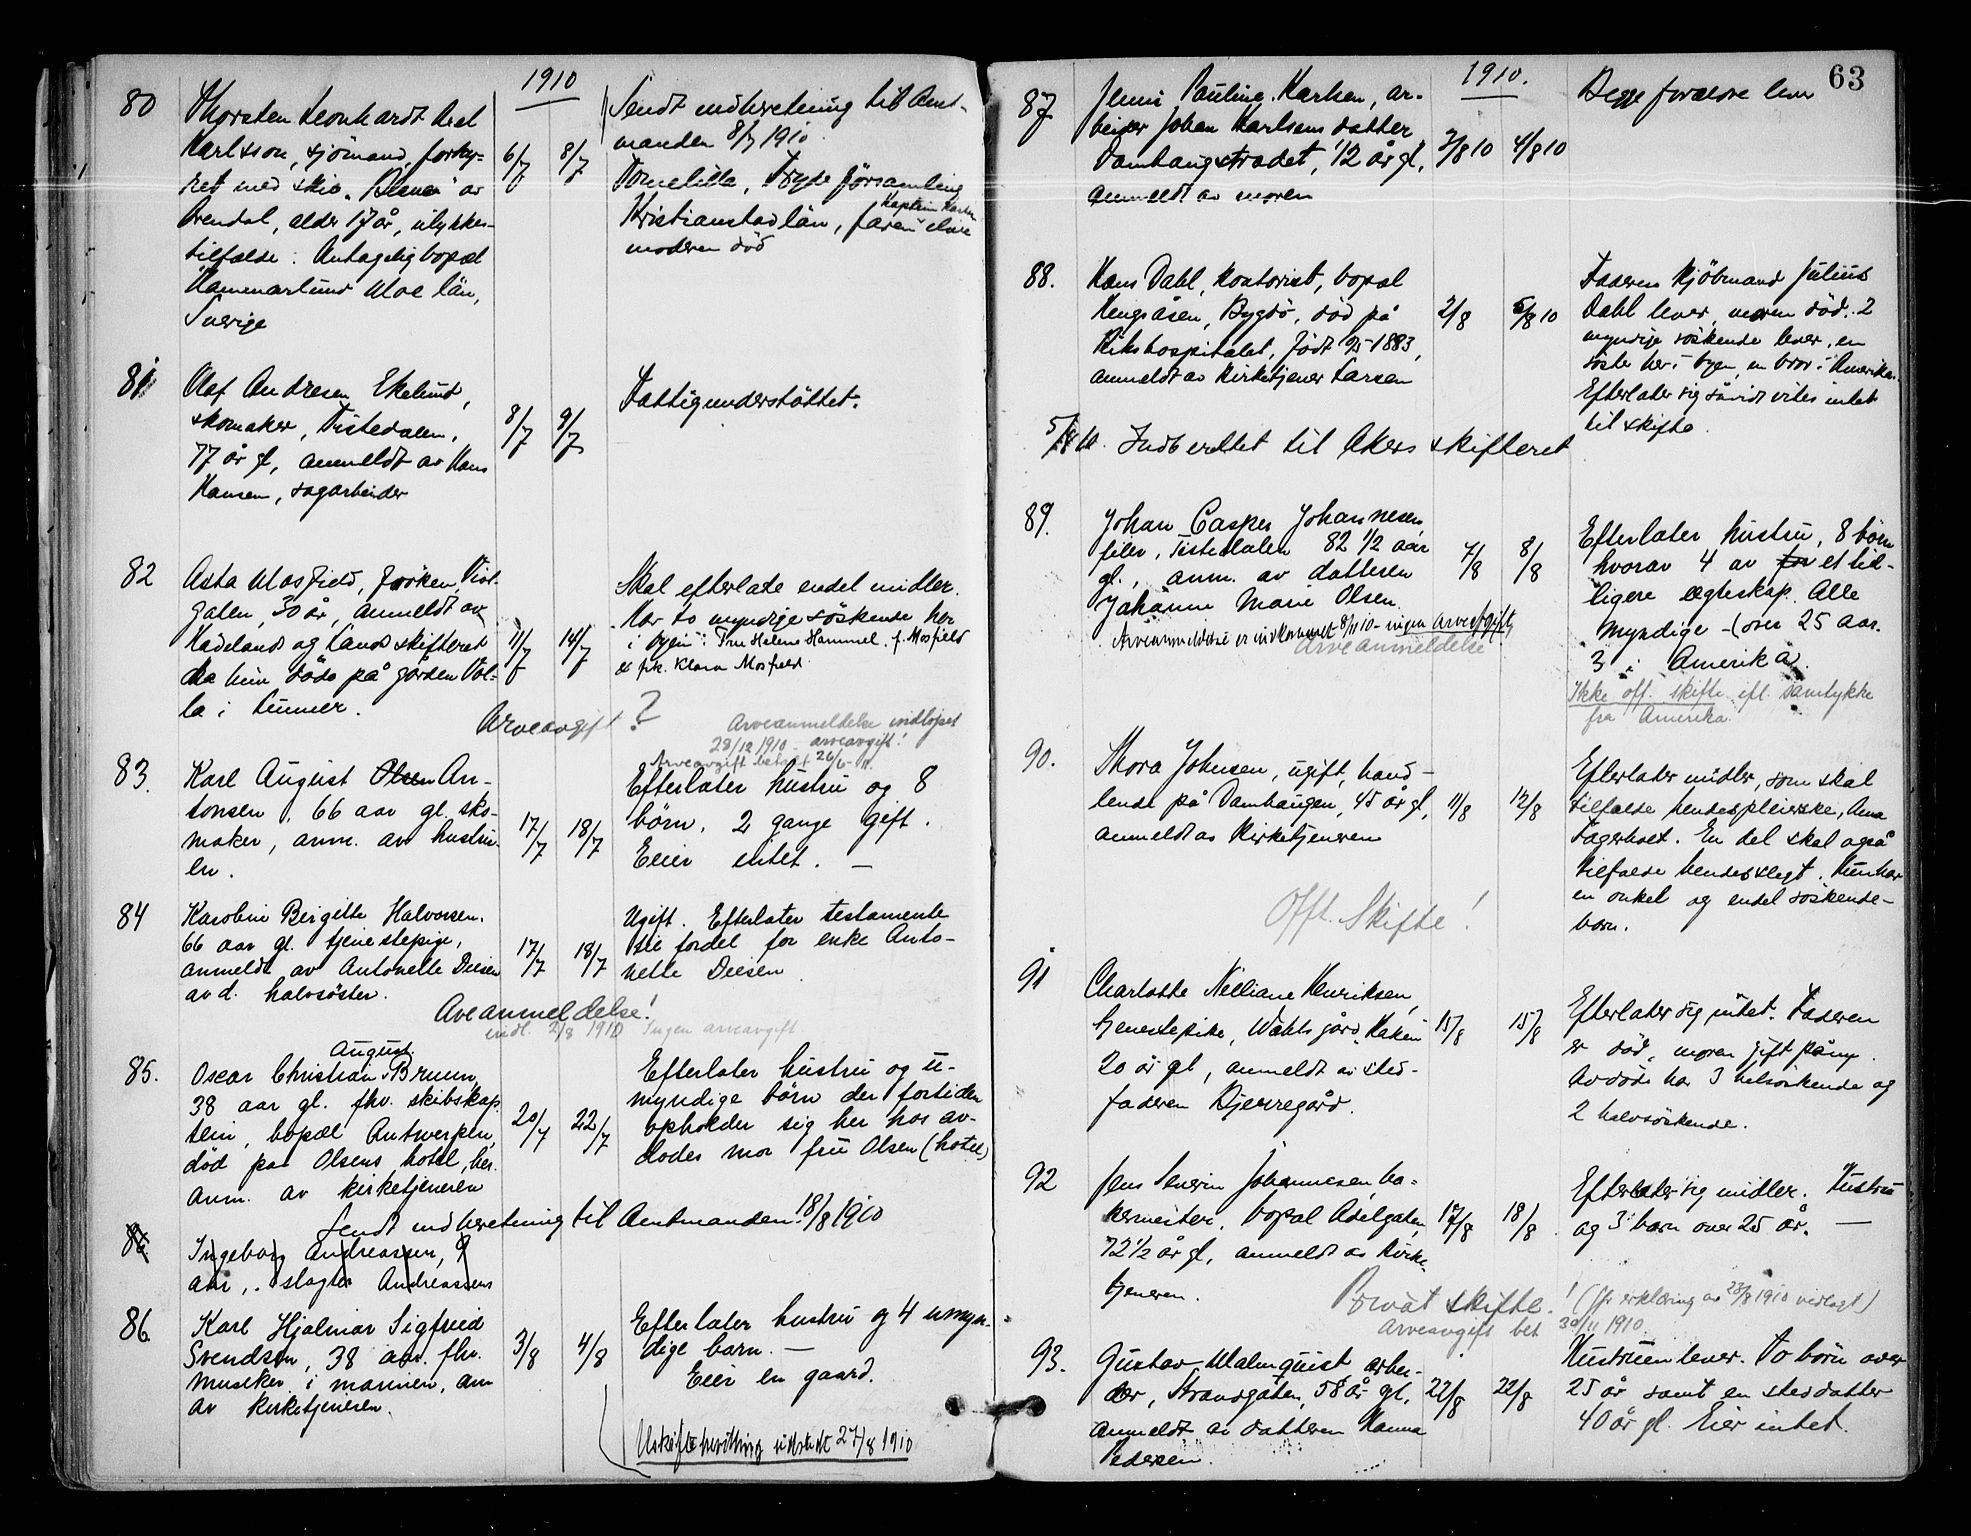 1910
80
Thorsten Leonhardt Axel
Karlsson, sjömand, forhy-
ret med skib "   " av
Arendal, alder 17 år, ulykkes-
tilfælde. Antagelig bopæl
Hammarlund Moe län,
Sverige
6/7 8/7
Sendt indberetning til Amt-
manden 8/7 1910.
Tomelilla, Tryde församling
Kristianstad län, faren Kaptein
moderen död
81
Olaf Andresen Ekelund,
skomaker, Tistedalen,
77 år gl, anmeldt av Hans
Hansen, sagarbeider
8/7 9/7
Fattigunderstöttet.
82
Asta Mosfjeld, fröken, Vold-
gaten, 30 år, anmeldt av
Hadeland og Lands skifteret
da hun döde på gården Vol-
la i Lunner.
11/7 14/7
Skal efterlate endel midler.
Har to myndige söskende her
i byen: Fru Helene Hammel f. Mosfjeld
& frk. Klara Mosfjeld.
Arveavgift ?
Arveanmeldelse indlöpet
28/12 1910 - arveavgift!
Arveavgift betalt 26/6- 11.
83.
Karl August Olsen An-
tonsen, 66 aar gl. sko-
maker, anm. av hustru-
en.
17/7 18/7
Efterlater hustru og 8
börn. 2 gange gift.
Eier intet. —
84
Karoline Birgitte Halvorsen.
66 aar gl. tjenestepige,
anmeldt av Antonette Diesen
avd. halvsöster.
17/7 18/7
Ugift. Efterlater testamente
til fordel for enke Anto-
nette Diesen
Aveanmeldelse!
indl. 2/8 1910 Ingen arveavgift.
85.
August
Oscar Christian Bruun
38 aar gl. fhv. skibskap-
tein, bopæl Antwerpen,
död paa Olsens hotel, her.
Anm. av kirketjeneren
20/7 22/7
Efterlater hustru og u-
myndige börn der fortiden
opholder sig her hos av-
dödes mor fru Olsen (hotel)
Sendt indberetning til Amtmanden 18/8 1910
86
Ingeborg Andreassen, 9
aar, slagter Andreassens
86
Karl Hjalmar Sigfried
Svendsen, 38 aar. fhv.
musiker i marinen, anm
av kirketjeneren.
3/8 4/8
Efterlater hustru og 4 umyn-
dige barn. —
Eier en gaard.
Uskiftebevilling utstedt 27/8 1910
63
1910.
87
Jenni Pauline Karlsen, ar-
beider Johan Karlsens datter
Damhaugstrædet, 1/2 år gl,
anmeldt av moren
3/8 10 4/8 10
Begge forældre lever
88.
Hans Dahl, kontorist, bopæl
Hengsåsen, Bygdö, död på
Rikshospitalet, födt 1883,
anmeldt av kirketjener Larsen
2/8 5/8 10
Faderen kjöbmand Julius
Dahl lever, moren död. 2
myndige söskende lever, en
söster her i byen, en bror i Amerika.
Efterlater sig såvidt vites intet
til skifte.
5/8 10. Indberettet til Akers skifteret
89.
Johan Casper Johannesen
filer, Tistedalen 82 1/2 aar
gl., anm. av datteren
Johanne Marie Olsen.
Arveanmeldelse er indkommet 8/11 10 - ingen Arveafgift
Arveanmeldelse
7/8 8/8
Efterlater hustru, 8 börn
hvorav 4 av for et tid-
ligere ægteskap. Alle
myndige - (over 25 aar.
3 i Amerika).
Ikke off. skifte ifl. samtykke
fra Amerika.
90.
Thora Johnsen, ugift, hand-
lende på Damhaugen, 45 år gl,
anmeldt av kirketjeneren
11/8 12/8
Efterlater midler, som skal
tilfalde hendes pleierske, Anna
Fagerholt. En del skal også
tilfalde hendes slegt. Hun har
en onkel og endel söskende-
barn.
Offt. Skifte!
91
Charlotte Nelliane Henriksen,
tjenestepike, Wahlsgård,
20 år gl, anmeldt av sted-
faderen Bjerregård.
15/8 15/8
Efterlater sig intet. Faderen
er död, moren gift påny.
Avdöde har 3 helsöskende og
2 halvsöskende.
92
Jens Severin Johannesen, ba-
kermester, bopæl Adelgaten,
72 1/2 år gl, anmeldt av kirke-
tjeneren.
17/8 18/8
Efterlater sig midler. Hustru
og 3 barn over 25 år. —
Privat skifte! (ifr erklæring av 23/8 1910 vedlagt)
Arveavgift bet 30/11 1910
93.
Gustav Malmquist, arbei-
der, Strandgaten, 58 år gl,
anmeldt av datteren Hanna
Pedersen.
22/8 22/8
Hustruen lever. To börn over
25 år samt en steddatter
40 år gl. Eier intet.